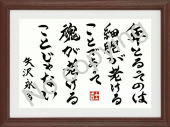 年とるのは
細胞が老ける
ことであって
魂が老ける
ことじゃない
矢沢永吉